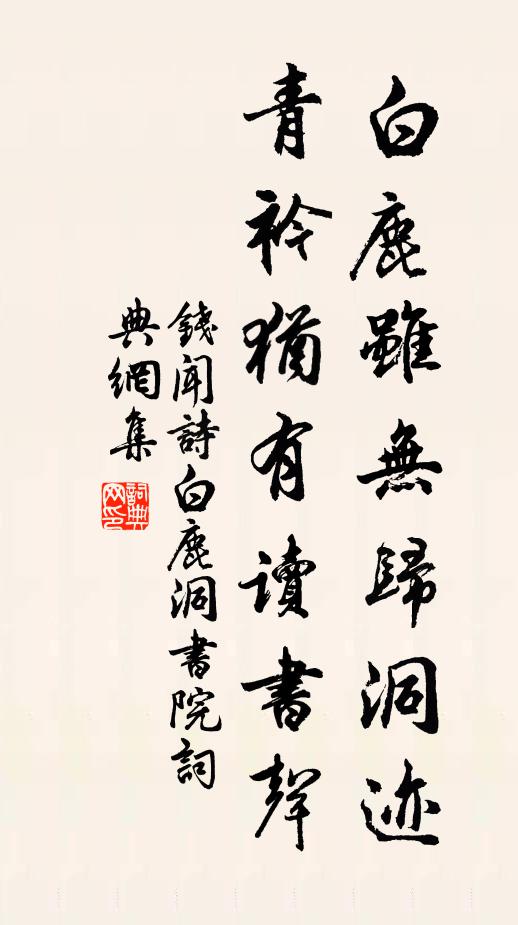 白鹿雖無歸洞迹
青衿猶有读書聲
錢聞詩白鹿洞書院詞
典網集
詞典网印